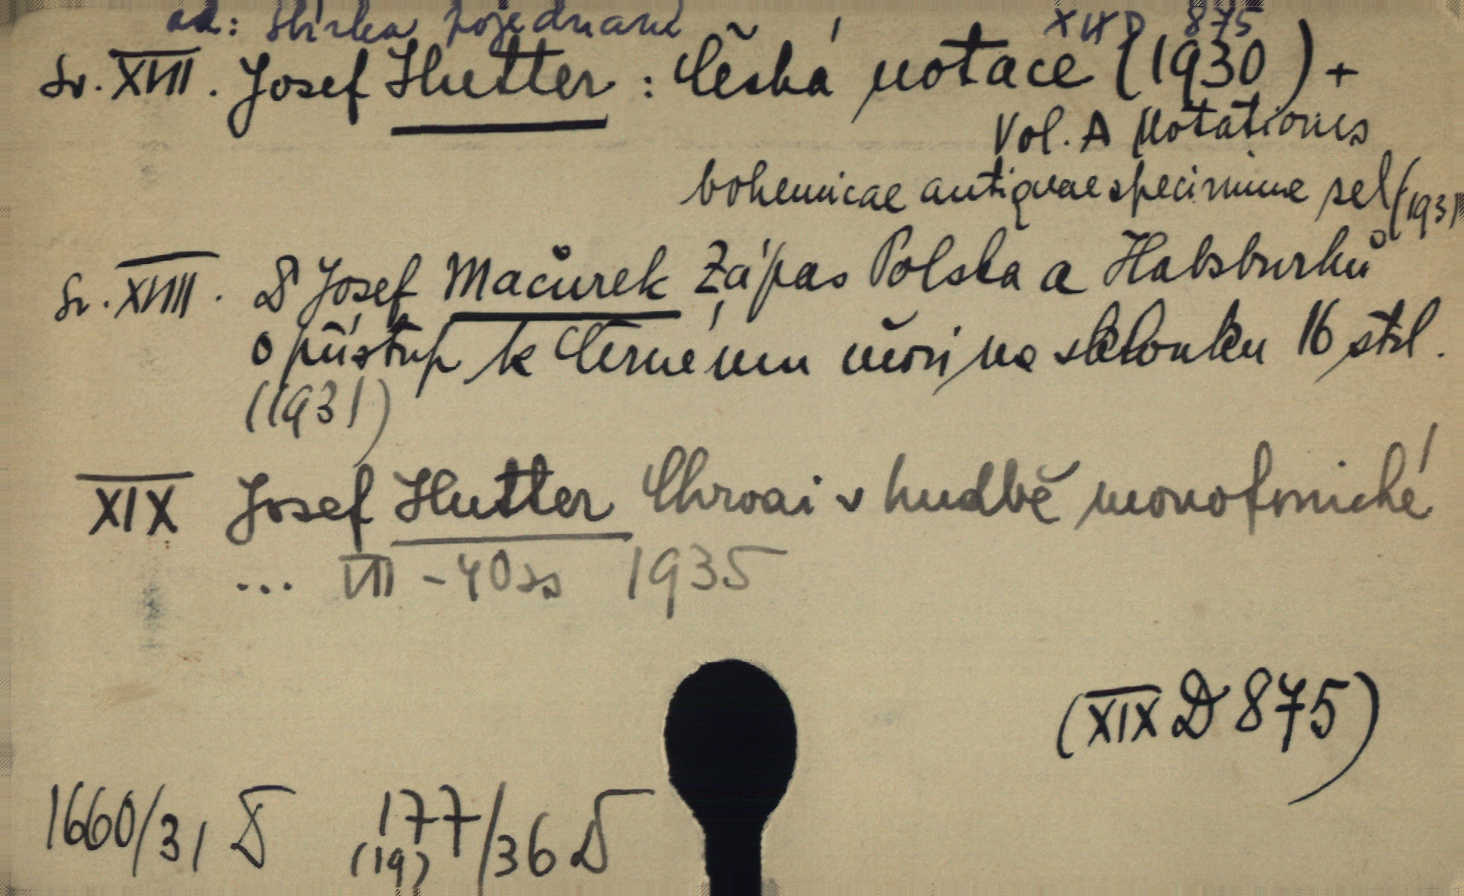 ad: Sbírka pojednání XIX D 875
Sv. XVII. Josef Hutter: Česká notace (1930) +
Vol. A Notationis
bohemicae antiquae specimine sel (1931
Sv. XVIII. D Josef Macůrek Zápas Polska a Habsburků
o přístup k Černému moři na sklonku 16 stol.
(1931)
XIX Josef Hutter Chroai v hudbě monofonické
... VII - 40 ss 1935
(XIX D 875)
1660/31 D 177/36 D
(19)